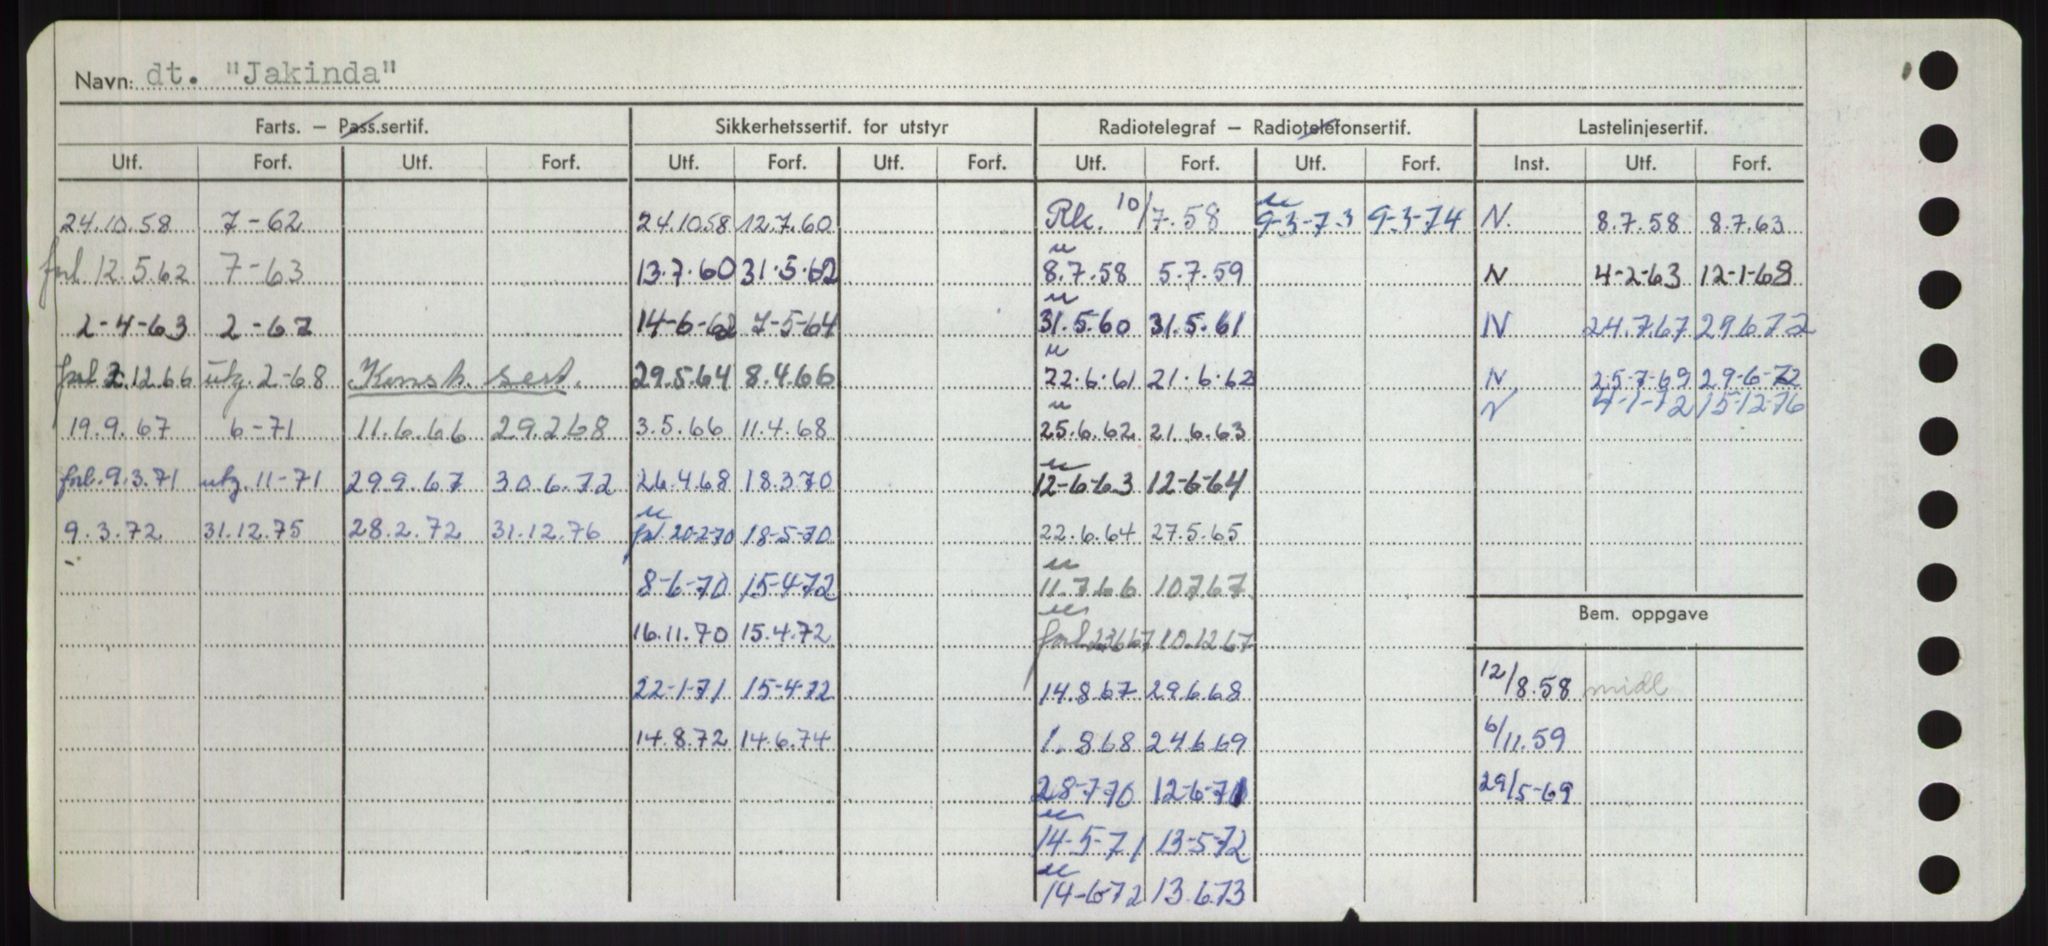 Navn: dt. "Jakinda"
Farts. – Pass.sertif. Sikkerhetssertif. for utstyr Radiotelegraf – Radiotelefonsertif. Lastelinjesertif.
Utf. Forf. Utf. Forf. Utf. Forf. Utf. Forf. Utf. Forf. Utf. Forf. Inst. Utf. Forf.
24.10.58 7-62 24.10.58 12.7.60 Rk. 10/7.58 u 9-3-73 9-3-74 N. 8.7.58 8.7.63
forl. 12.5.62 7-63 13.7.60 31.5.62 u 8.7.58 5.7.59 N 4-2-63 12-1-68
2-4-63 2-67 14-6-62 7-5-64 u 31.5.60 31.5.61 N 24.7.67 29.6.72
forl 2.12.66 utg. 2-68 Konstr. sert. 29.5.64 8.4.66 u 22.6.61 21.6.62 N 25-7-69 29-6-72
N 4-1-72 15-12-76
19.9.67 6-71 11.6.66 29.2.68 3.5.66 11.4.68 u 25.6.62 21.6.63
forl. 9.3.71 utg. 11-71 29.9.67 30.6.72 26.4.68 18.3.70 u 12-6-63 12-6-64
9.3.72 31.12.75 28.2.72 31.12.76 u forl. 20-2-70 18-5-70 22.6.64 27.5.65
8-6-70 15-4-72 u 11.7.66 10.7.67
16.11.70 15.4.72 u forl. 23.6.67 10.12.67
22-1-71 15-4-72 14.8.67 29.6.68
14.8.72 14.6.74 1.8.68 24.6.69
28-7-70 12-6-71
u 14-5-71 13-5-72
u 14-6-72 13.6.73
Bem. oppgave
12/8.58 midl
6/11.59
29/5-69